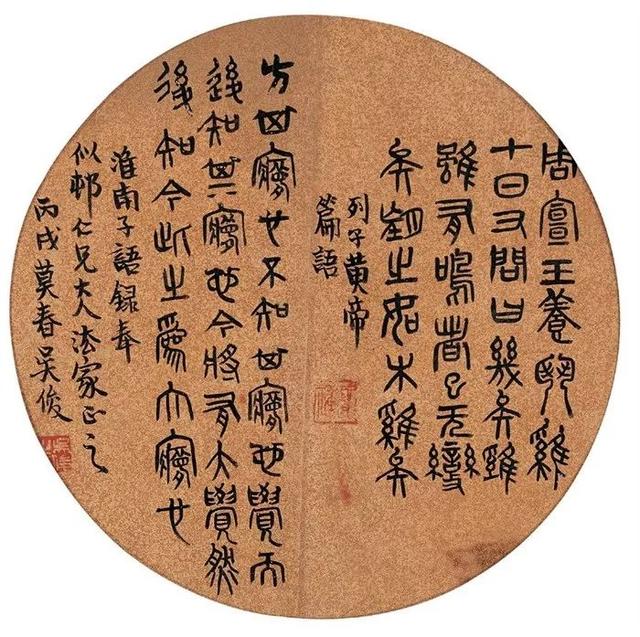 周宣王養鬥雞
十日又問曰幾矣雞
雖有鳴者已无變
矣望之如木雞矣
列子黄帝
篇語
方其夢也不知其夢也覺而
後知其夢也今將有大覺然
後知今此之爲大夢也
淮南子語録奉
似邨仁兄大人法家正之
丙戌莫春吴俊